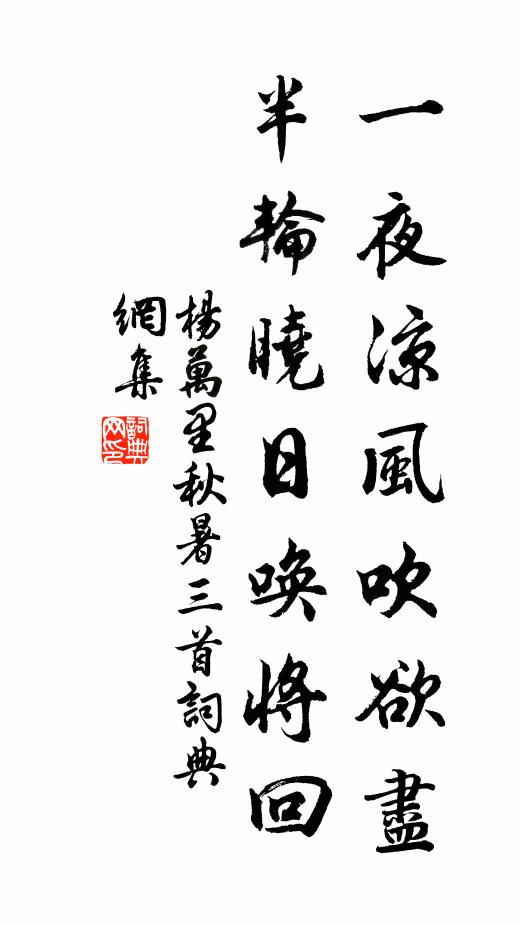 一夜涼風吹欲盡
半輪曉日喚將回
楊萬里秋暑三首詞典
網集
詞典网印